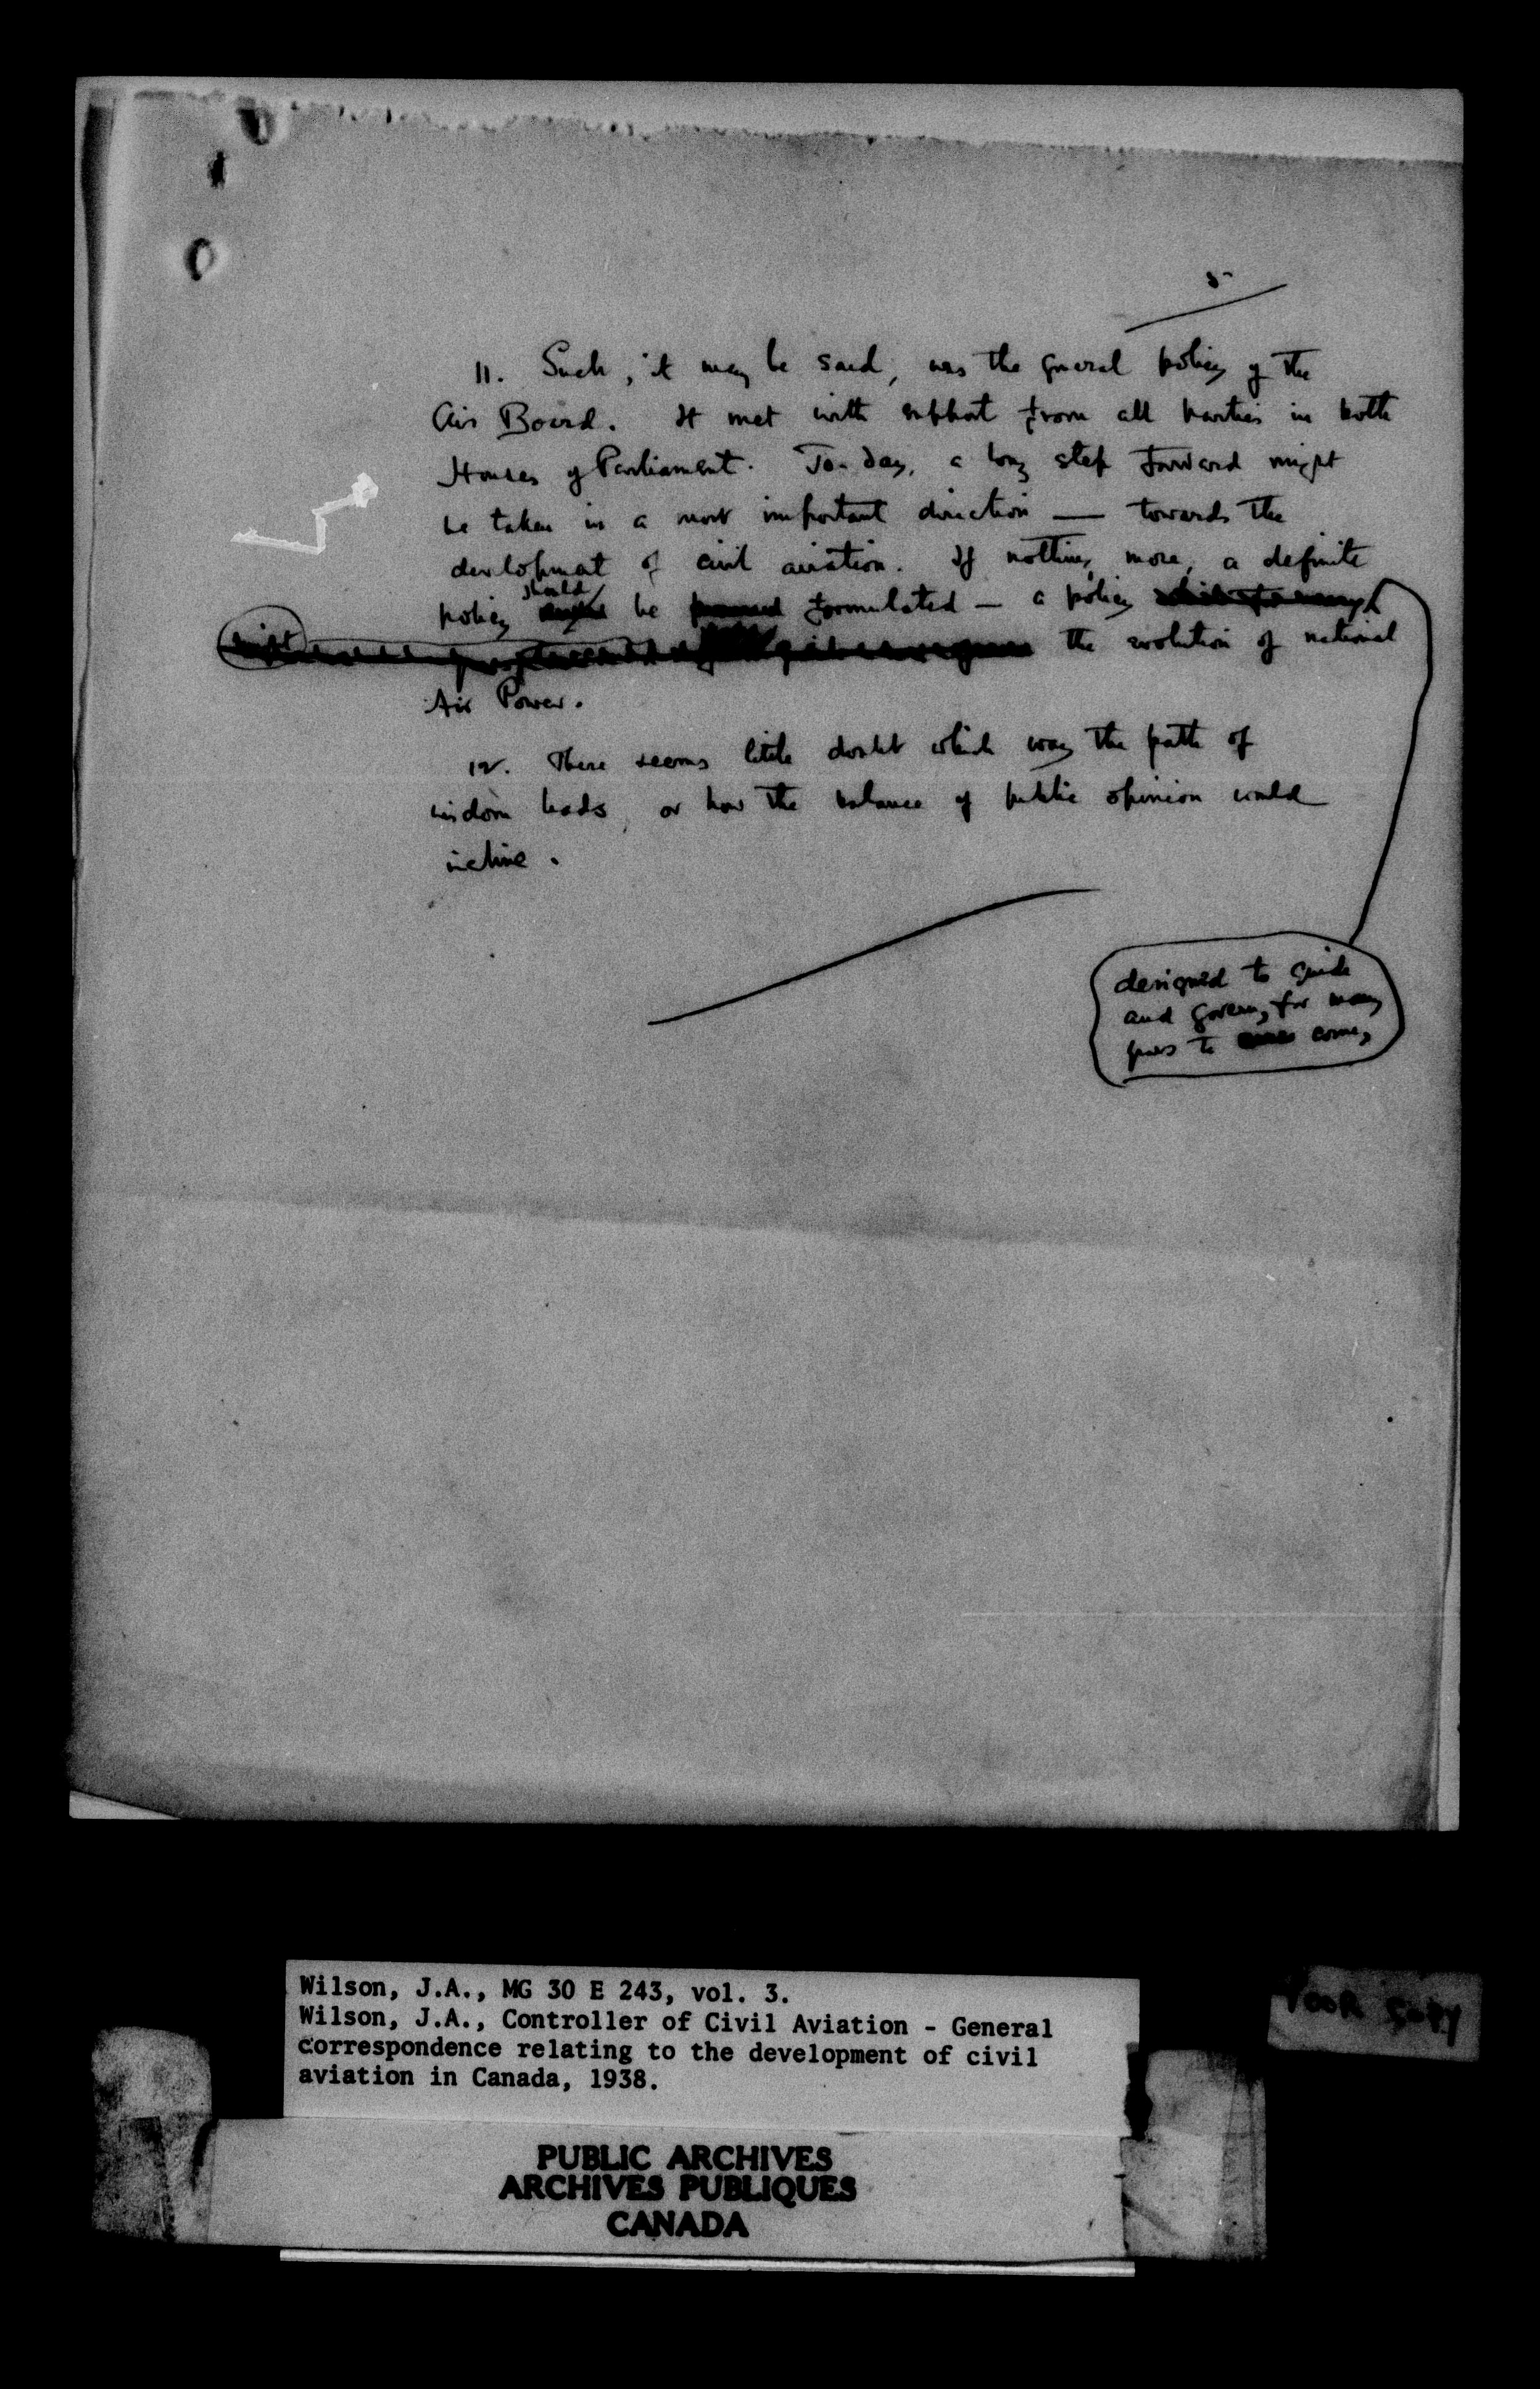 5
11. Such, it may be said, was the general policy of the
Air Board. It met with support from all parties in both
Houses of Parliament. To-day, a long step forward might
be taken in a most important direction — towards the
development of civil aviation. If nothing more, a definite
should
policy be formulated — a policy which for many
the evolution of national
Air Power.
12. There seems little doubt which way the path of
wisdom leads, or how the balance of public opinion would
incline.
designed to guide
and govern, for many
years to come,
Wilson, J.A., MG 30 E 243, vol. 3.
Wilson, J.A., Controller of Civil Aviation - General
correspondence relating to the development of civil
aviation in Canada, 1938.
POOR COPY
PUBLIC ARCHIVES
ARCHIVES PUBLIQUES
CANADA